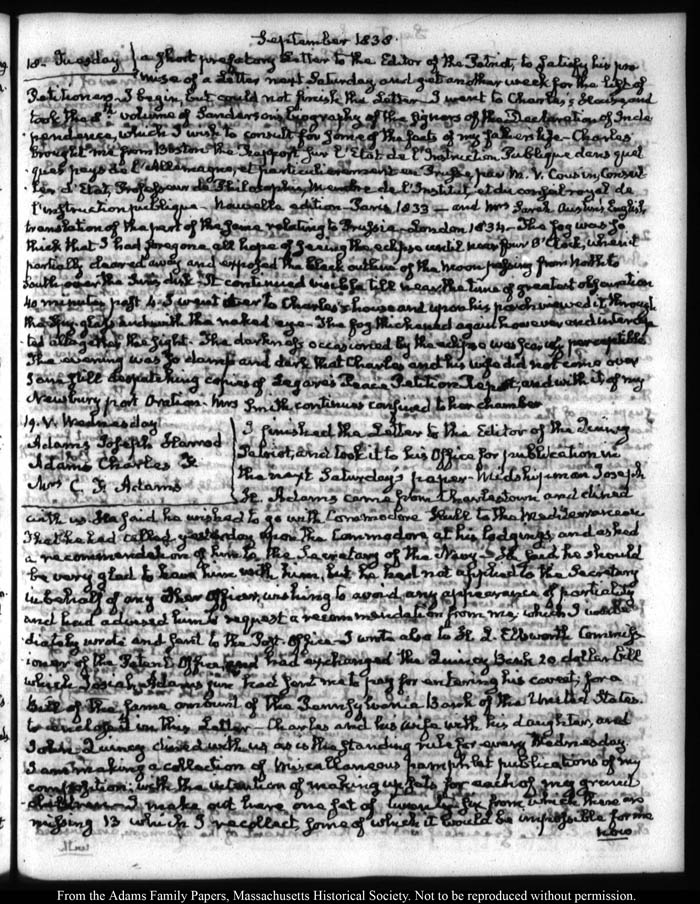 September 1838.
18. Tuesday a short prefatory Letter to the Editor of the Patriot, to satisfy his pro
mise of a Letter next Saturday and get another week for the list of
Petitioners. I begin, but could not finish the Letter. I went to Charles's House and
took the 8th volume of Sanderson's biography of the signers of the Declaration of Inde
pendence, which I wish to consult for some of the facts of my father's life. Charles
brought me from Boston the Rapport sur l'Etat de l'Instruction Publique dans quel
ques pays de l'Allemagne, et particulierement en Prusse par M. V. Cousin, Conseil
ler d'Etat, Professeur de Philosophie, Membre de l'Institut et du conseil royal de
l'instruction publique. Nouvelle edition. Paris 1833 — and Mrs Sarah Austin's English
translation of the part of the same relating to Prussia. London 1834. The fog was so
thick that I had foregone all hope of seeing the eclipse until near four O'Clock, when it
partially cleared away and exposed the black outline of the moon passing from North to
South over the Sun's disk. It continued visible till near the time of greatest obscuration
40 minutes past 4. I went over to Charles's house and upon his porch viewed it through
the Spy-glass and with the naked eye. The fog thickened again however and intercep
ted altogether the sight. The darkness occasioned by the eclipse was scarcely perceptible.
The evening was so damp and dark that Charles and his wife did not come over
I am still despatching copies of Legare's Peace Petition Report, and with it of my
Newbury port Oration. Mrs Smith continues confined to her chamber
19. V. Wednesday
Adams Joseph Harrod
Adams Charles F.
Mrs C. F. Adams
I finished the Letter to the Editor of the Quincy
Patriot, and took it to his Office for publication in
the next Saturday's paper. Midshipman Joseph
H. Adams came from Charlestown and dined
with us. He said he wished to go with Commodore Hull to the Mediterranean
That he had called yesterday upon the Commodore at his lodgings and asked
a recommendation of him to the Secretary of the Navy. He said he should
be very glad to have him with him, but he had not applied to the Secretary
in behalf of any other Officer, wishing to avoid any appearance of partiality
and had advised him to request a recommendation from me; which I imme
diately wrote and sent to the Post-Office. I wrote also to H. L. Ellsworth Commiss
ioner of the Patent Office, and had exchanged the Quincy Bank 20 dollar bill
which Josiah Adams junr had sent me to pay for entering his caveat, for a
bill of the same amount of the Pennsylvania Bank of the United States.
to enclose it in this Letter. Charles and his wife with his daughter, and
John Quincy dined with us as is the standing rule for every Wednesday.
I am making a collection of Miscellaneous pamphlet publications of my
composition: with the intention of making up sets for each of my grand
children. I make out here one set of twenty six from which there are
missing 13 which I recollect, some of which it would be impossible for me
now
From the Adams Family Papers, Massachusetts Historical Society. Not to be reproduced without permission.